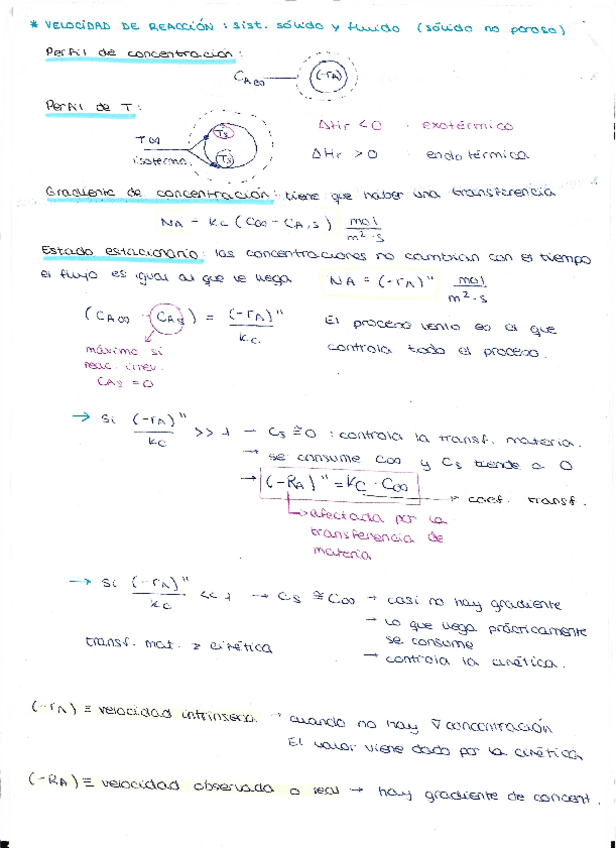 * VELOCIDAD DE REACCIÓN : sist. sólido y fluido (sólido no poroso)
Perfil de concentración :
CA∞ (-rA)
Perfil de T :
T∞ Ts
isotermo. Ts
ΔHr < 0 exotérmico
ΔHr > 0 endotérmica
Gradiente de concentración : tiene que haber una transferencia
NA = kc (C∞ - CA,s) mol / m² · s
Estado estacionario : las concentraciones no cambian con el tiempo
el flujo es igual al que le llega NA = (-rA)" mol / m² · s
(CA∞ - CAs) = (-rA)" / kc.
El proceso lento es el que
controla todo el proceso.
máximo si
reac. irrev.
CAs = 0
→ Si (-rA)" / kc >> 1 → Cs ≅ 0 : controla la transf. materia.
→ se consume C∞ y Cs tiende a 0
→ (-RA)" = kc · C∞ → coef. transf.
→ afectada por la
transferencia de
materia
→ Si (-rA)" / kc << 1 → Cs ≅ C∞ → casi no hay gradiente
→ lo que llega prácticamente
se consume
→ controla la cinética.
transf. mat. ≥ cinética
(-rA) ≡ velocidad intrínseca → cuando no hay ∇ concentración
El valor viene dado por la cinética
(-RA) ≡ velocidad observada o real → hay gradiente de concent.